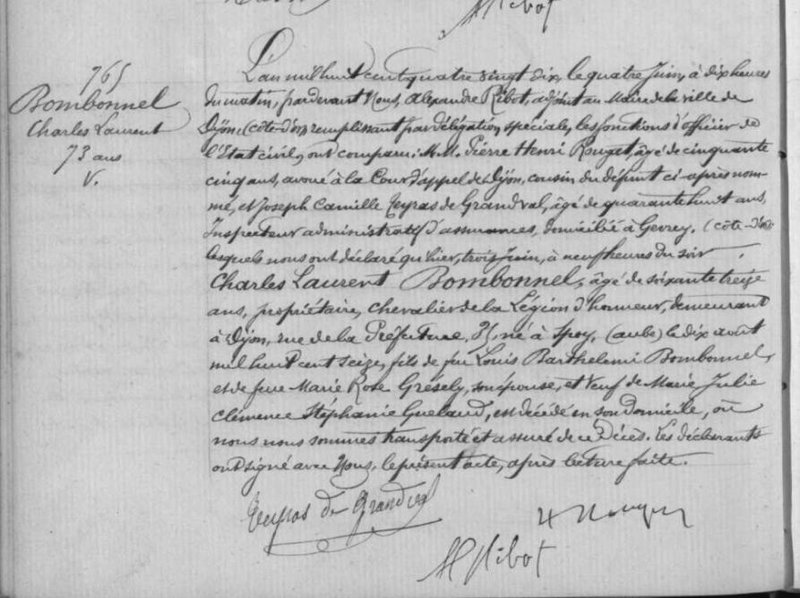 765
Bombonnel
Charles Laurent
73 ans
V.
L'an mil huit cent quatre vingt dix, le quatre Juin, à dix heures
du matin, par devant Nous, Alexandre Ribot, adjoint au Maire de la ville de
Dijon, (côte-d'or) remplissant par délégation spéciale, les fonctions d'officier de
l'Etat civil, ont comparu: M.M. Pierre Henri Rouget, âgé de cinquante
cinq ans, avoué à la Cour d'appel de Dijon, cousin du défunt ci-après nom-
mé, et Joseph Camille Teyras de Grandval, âgé de quarante huit ans,
Inspecteur administratif d'assurances, domicilié à Gevrey, (côte-d'or)
lesquels nous ont déclaré qu'hier, trois Juin, à neuf heures du soir
Charles Laurent Bombonnel, âgé de soixante treize
ans, propriétaire, Chevalier de la Légion d'honneur, demeurant
à Dijon, rue de la Préfecture, né à Spoy, (aube) le dix août
mil huit cent seize, fils de feu Louis Barthelemi Bombonnel,
et de feue Marie Rose Grésely, son épouse, et Veuf de Marie Julie
Clémence Stéphanie Guelaud, est décédé en son domicile, où
nous nous sommes transporté et assuré de ce Décès. Les déclarants
ont signé avec Nous, le présent acte, après lecture faite.
Teyras de Grandval
H Rouget
A Ribot